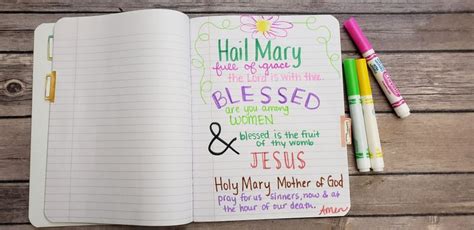 Hail Mary
full of grace
the Lord is with thee.
BLESSED
are you among
WOMEN
& blessed is the fruit
of thy womb
JESUS
Holy Mary Mother of God
pray for us sinners, now & at
the hour of our death. Amen